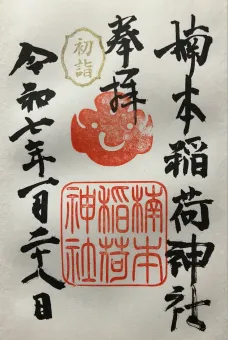 楠本稲荷神社
奉拝
初詣
令和七年一月二十八日
楠本
稲荷
神社